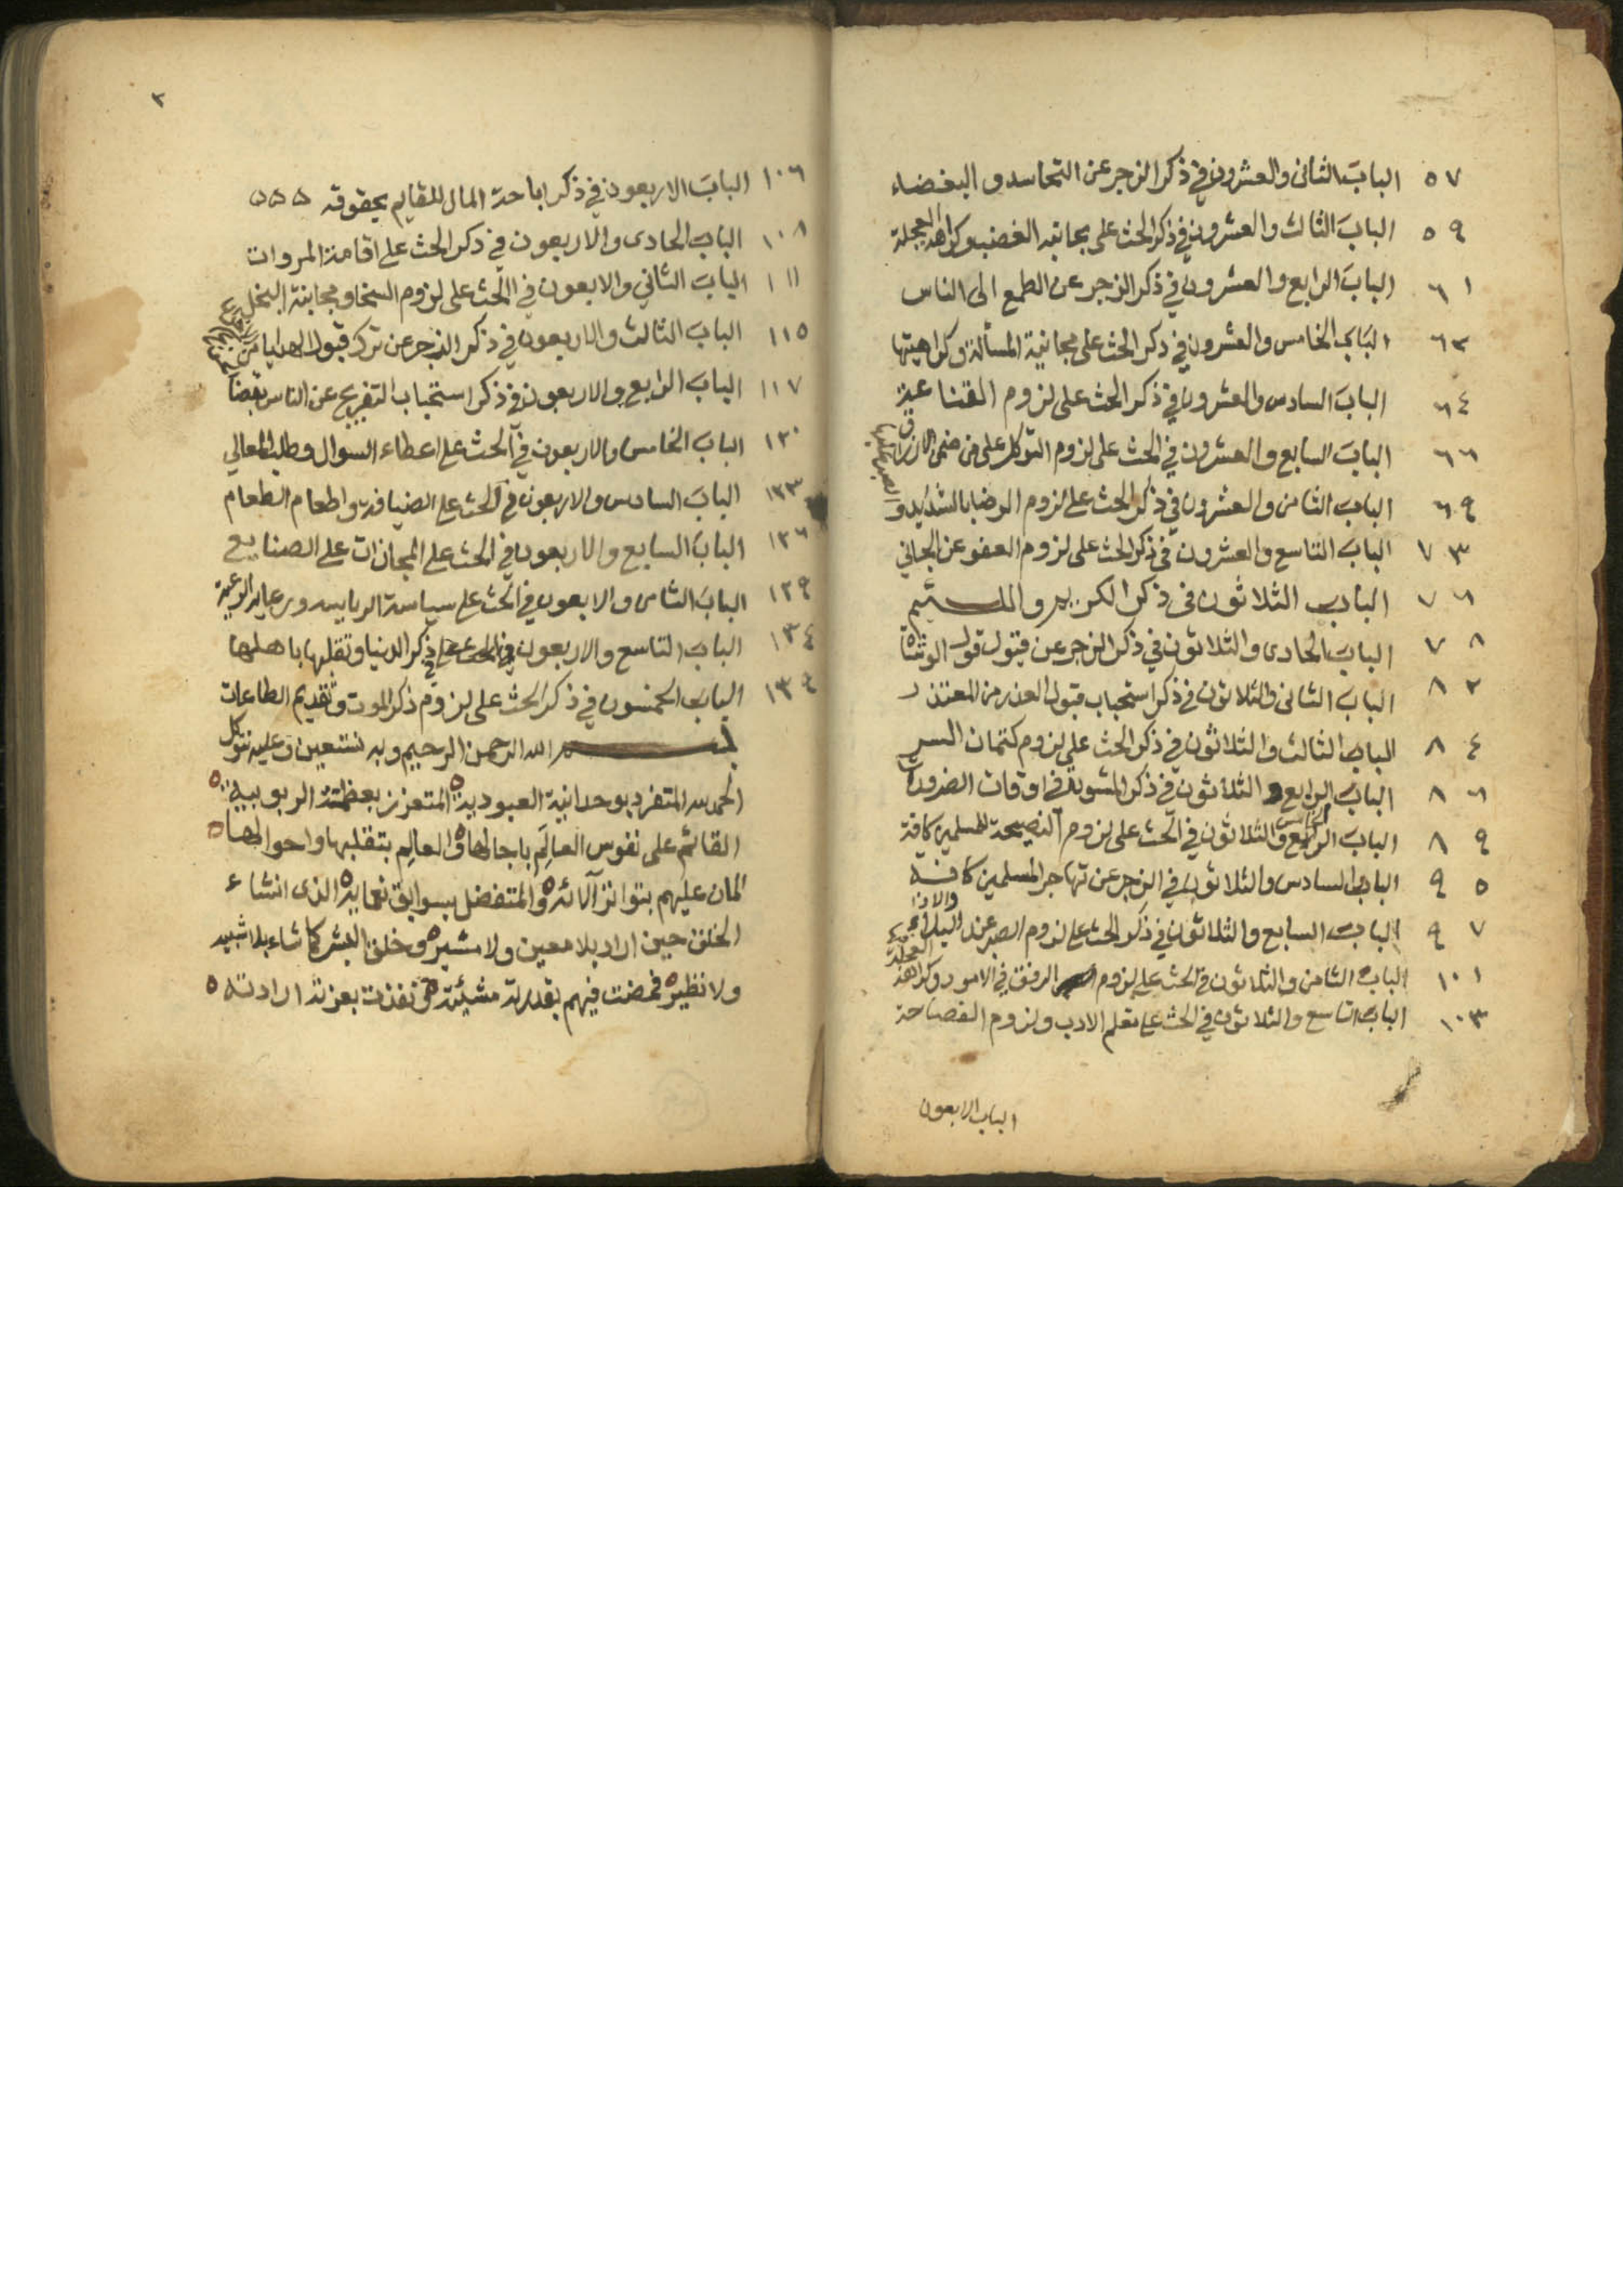 ٥٧ الباب الثانى والعشرون في ذكر الزجر عن التحاسد و البغضاء
٥٩ الباب الثالث والعشرون في ذكر الحث على مجانبه الغضب وكراهه العجلة
٦١ الباب الرابع والعشرون في ذكر الزجر عن الطمع الى الناس
٦٢ الباب الخامس والعشرون في ذكر الحث على مجانبة المسألة وكراهيتها
٦٤ الباب السادس والعشرون في ذكر الحث على لزوم القناعة
٦٦ الباب السابع والعشرون في الحث على لزوم التوكل على من ضمن الارزاق
٦٩ الباب الثامن والعشرون في ذكر الحث على لزوم الرضا بالشدايد و الصبر عليها
٧٣ الباب التاسع والعشرون في ذكر الحث على لزوم العفو عن الجاني
٧٦ الباب الثلاثون في ذكر الكريم واللئيم
٧٨ الباب الحادى والثلاثون في ذكر الزجر عن قبول قول الوشاة
٨٢ الباب الثانى والثلاثون في ذكر استحباب قبول العذر من المعتذر
٨٤ الباب الثالث والثلاثون في ذكر الحث على لزوم كتمان السر
٨٦ الباب الرابع و الثلاثون في ذكر المشورة في اوقات الضرورة
٨٩ الباب الخامس والثلاثون في الحث على لزوم النصيحة للمسلمين كافة
٩٥ الباب السادس والثلاثون في الزجر عن تهاجر المسلمين كافة
٩٧ الباب السابع والثلاثون في ذكر الحث على لزوم الصبر عند البلاء والاذا
١٠١ الباب الثامن والثلاثون في الحث على لزوم الرفق في الامور وكراهة العجلة
١٠٣ الباب التاسع والثلاثون في الحث على تعلم الادب ولزوم الفصاحة
الباب الاربعون
٢
١٠٦ الباب الاربعون في ذكر اباحة المال للقايم بحقوقه
١٠٨ الباب الحادى والاربعون في ذكر الحث على اقامة المروات
١١١ الباب الثاني والابعون في الحث على لزوم السخا ومجانبة البخل
١١٥ الباب الثالث والاربعون في ذكر الزجر عن ترك قبول الهدايا من
١١٧ الباب الرابع والاربعون في ذكر استحباب التفريج عن الناس بعضا
١٢٠ الباب الخامس والاربعون في الحث على اعطاء السوال وطلب المعالي
١٢٣ الباب السادس والاربعون في الحث على الضيافة واطعام الطعام
١٢٦ الباب السابع والاربعون في الحث على المجازات على الصنايع
١٢٩ الباب الثامن والابعون في الحث على سياسة الرياسه ورعايه الرعية
١٣٤ الباب التاسع والاربعون في ذكر الدنيا وتقلبها باهلها
١٣٩ الباب الخمسون في ذكر الحث على لزوم ذكر الموت وتقديم الطاعات
بسم الله الرحمن الرحيم وبه نستعين وعليه نتوكل
الحمد لله المتفرد بوحدانية العبودية المتعزز بعظمة الربوبية
القائم على نفوس العالم باجالها والعالم بتقلبها واحوالها
المان عليهم بتواتر آلائه والمتفضل بسوابق نعمايه الذى انشاء
الخلق حين اراد بلا معين ولا مشير وخلق البشر كما شاء بلا شبيه
ولا نظير فمضت فيهم بقدرته مشيئته ونفذت بعزته ارادته